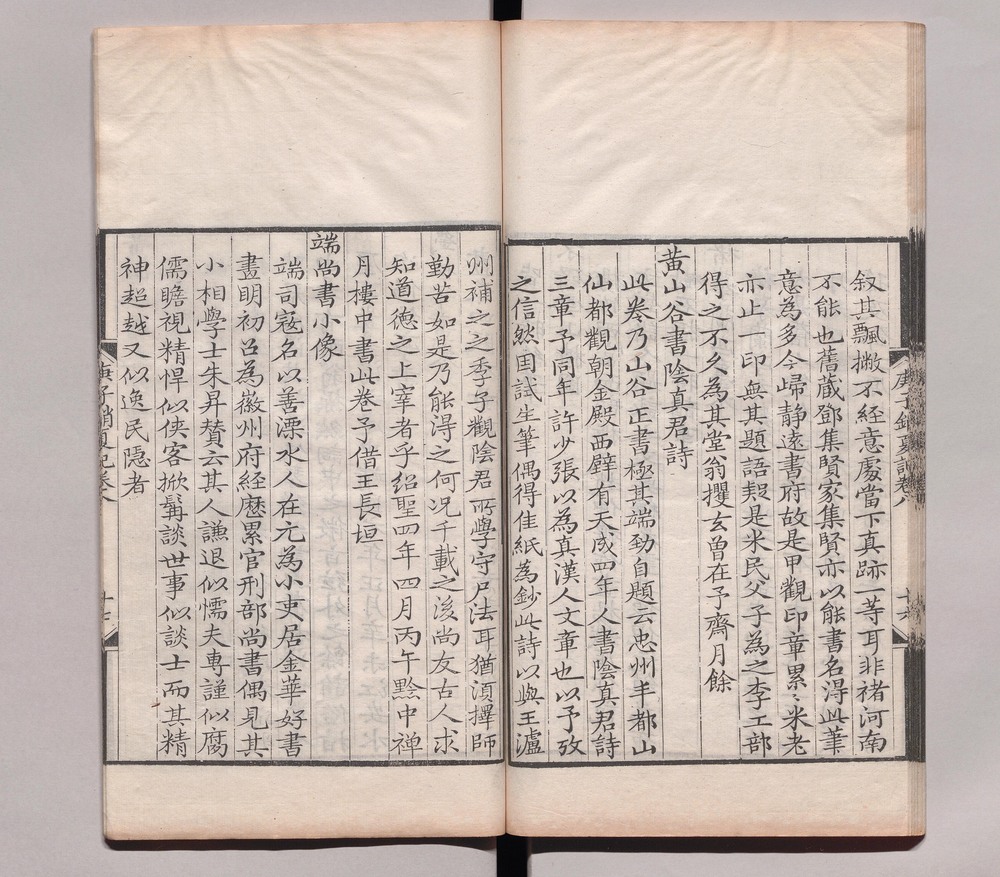 叙其飄撇不經意處當下真跡一等耳非褚河南
不能也舊蔵鄧集賢家集賢亦以能書名得此筆
意為多今歸静遠書府故是甲觀印章累〻米老
亦止一印無其題語疑是米民父子為之李工部
得之不久為其堂翁攫去曾在予齋月餘
黄山谷書陰真君詩
此卷乃山谷正書極其端勁自題云忠州丰都山
仙都觀朝金殿西壁有天成四年人書陰真君詩
三章予同年許少張以為真漢人文章也以予攷
之信然因試生筆偶得佳紙為鈔此詩以與王瀘
州補之之季子觀陰君所學守尸法耳猶湏擇師
勤苦如是乃能得之何况千載之後尚友古人求
知道德之上宰者乎紹聖四年四月丙午黔中禅
月樓中書此卷予借王長垣
端尚書小像
端司寇名以善溧水人在元為小吏居金華好書
畫明初召為徽州府経歷累官刑部尚書偶見其
小相學士朱昇賛云其人謙退似懦夫専謹似腐
儒瞻視精悍似侠客掀髯談世事似談士而其精
神超越又似逸民隠者